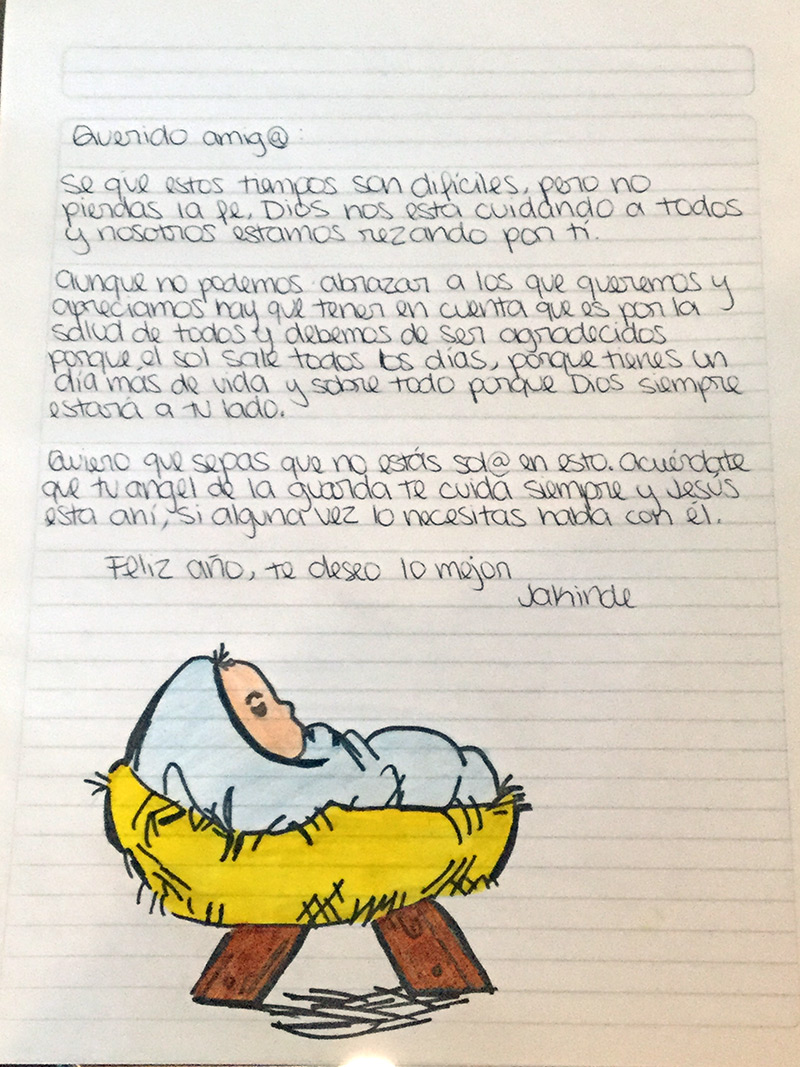 Querido amig@:
Se que estos tiempos son difíciles, pero no
pierdas la fe, Dios nos está cuidando a todos
y nosotros estamos rezando por tí.
Aunque no podemos abrazar a los que queremos y
apreciamos hay que tener en cuenta que es por la
salud de todos y debemos de ser agradecidos
porque el sol sale todos los días, porque tienes un
día mas de vida y sobre todo porque Dios siempre
estará a tu lado.
Quiero que sepas que no estás sol@ en esto. Acuérdate
que tu angel de la guarda te cuida siempre y Jesús
esta ahí, si alguna vez lo necesitas habla con él.
Feliz año, te deseo lo mejor
Jakinde